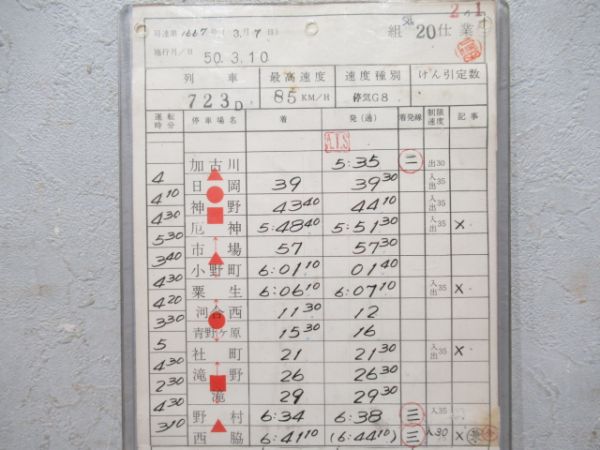 司達第1667号(3月7日) 組 20仕業 2の1
施行月/日 50.3.10
列車 最高速度 速度種別 けん引定数
723D 85KM/H 停気G8
運転時分 停車場名 着 発(通) 着発線 制限速度 記事
A.T.S
加古川 5:35 二 出30
4
日岡 39 39 30 入出35
4 10
神野 43 40 44 10 入出35
4 30
厄神 5:48 40 5:51 30 入出35 ×
5 30
市場 57 57 30
3 40
小野町 6:01 10 01 40 入出35
4 30
粟生 6:06 10 6:07 10 入出35 ×
4 20
河合西 11 30 12
3 30
青野ヶ原 15 30 16
5
社町 21 21 30 入出35 ×
4 30
滝野 26 26 30
2 30
滝 29 29 30
4 30
野村 6:34 6:38 三 入35
3 10
西脇 6:41 10 (6:44 10) 三 入30 ×